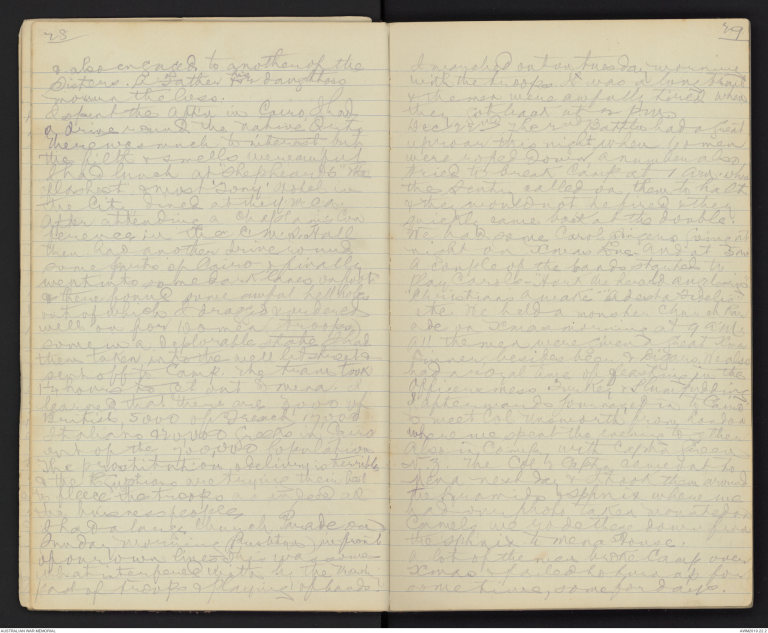 28
& also engaged to another of the
Sisters. A Father & daughters
mourn the loss.
I spent the aftn in Cairo & had
a drive round the native City
there was much to interest but
the filth & smells were awful
I had lunch at Shepheards "the
flashest & most 'Tony' Hotel in
the City dined at the Y.M.C.A.
after attending a Chaplains Con
ference in the Hall
then had another drive round
some parts of Cairo & finally
went into some dark lanes on foot
& there found some awful hell holes
out of which I dragged
well on for 20 men (troops)
some in a deplorable state & had
them taken into the well lit streets &
sent off to Camp. The tram took
1½ hours to get out to Mena. I
learned that there are 2,000 of
British, 5000 of French, 17,000
Italians 20,000 Greeks in Cairo
out of the 700,000 population.
The prostitution & devilry is terrible
& the Egyptians are trying their best
to fleece the troops as indeed all
the business people.
I had a large Church Parade on
Sunday morning in front
of our own lines this was some
what interfered with by the march
past of troops & playing of bands!
29
I marched out on Tuesday morning
with the troops. It was a long
& the men were awfully tired when
they got back at 2 p.m.
Dec 22nd The 2nd Battn had a great
uproar this night when 60 men
were roped down, a number also
tried to break Camp at 1 a.m. while
the Sentry called on them to halt
& they would not he fired & they
quickly came back at the double.
We had some Carol Singers
night on Xmas Eve. And at 5 am
a couple of the bands started to
play Carols. About we heard anglars
Christians Awake "Adeste Fidelis
etc. We held a monster Church Par
ade on Xmas morning at 9 a.m.
All the men were given a great Xmas
Dinner, besides beer & cigars. We also
had a royal time of feasting in the
Officers mess Turkey & Plum Pudding
I afterwards journeyed in to Cairo
to meet Col Unsworth from London
where we spent the evening together
Also in Camp with Captn Green
N.Z. The Col & Captn came out to
Mena next day & I took them around
the Pyramids & Sphinx where we
had our photo taken mounted on
Camels we rode these down from
the Sphinx to Mena House.
A lot of the men broke Camp over
Xmas & failed to turn up for
some time, some for days.
AUSTRALIAN WAR MEMORIAL
AWM2019.22.2